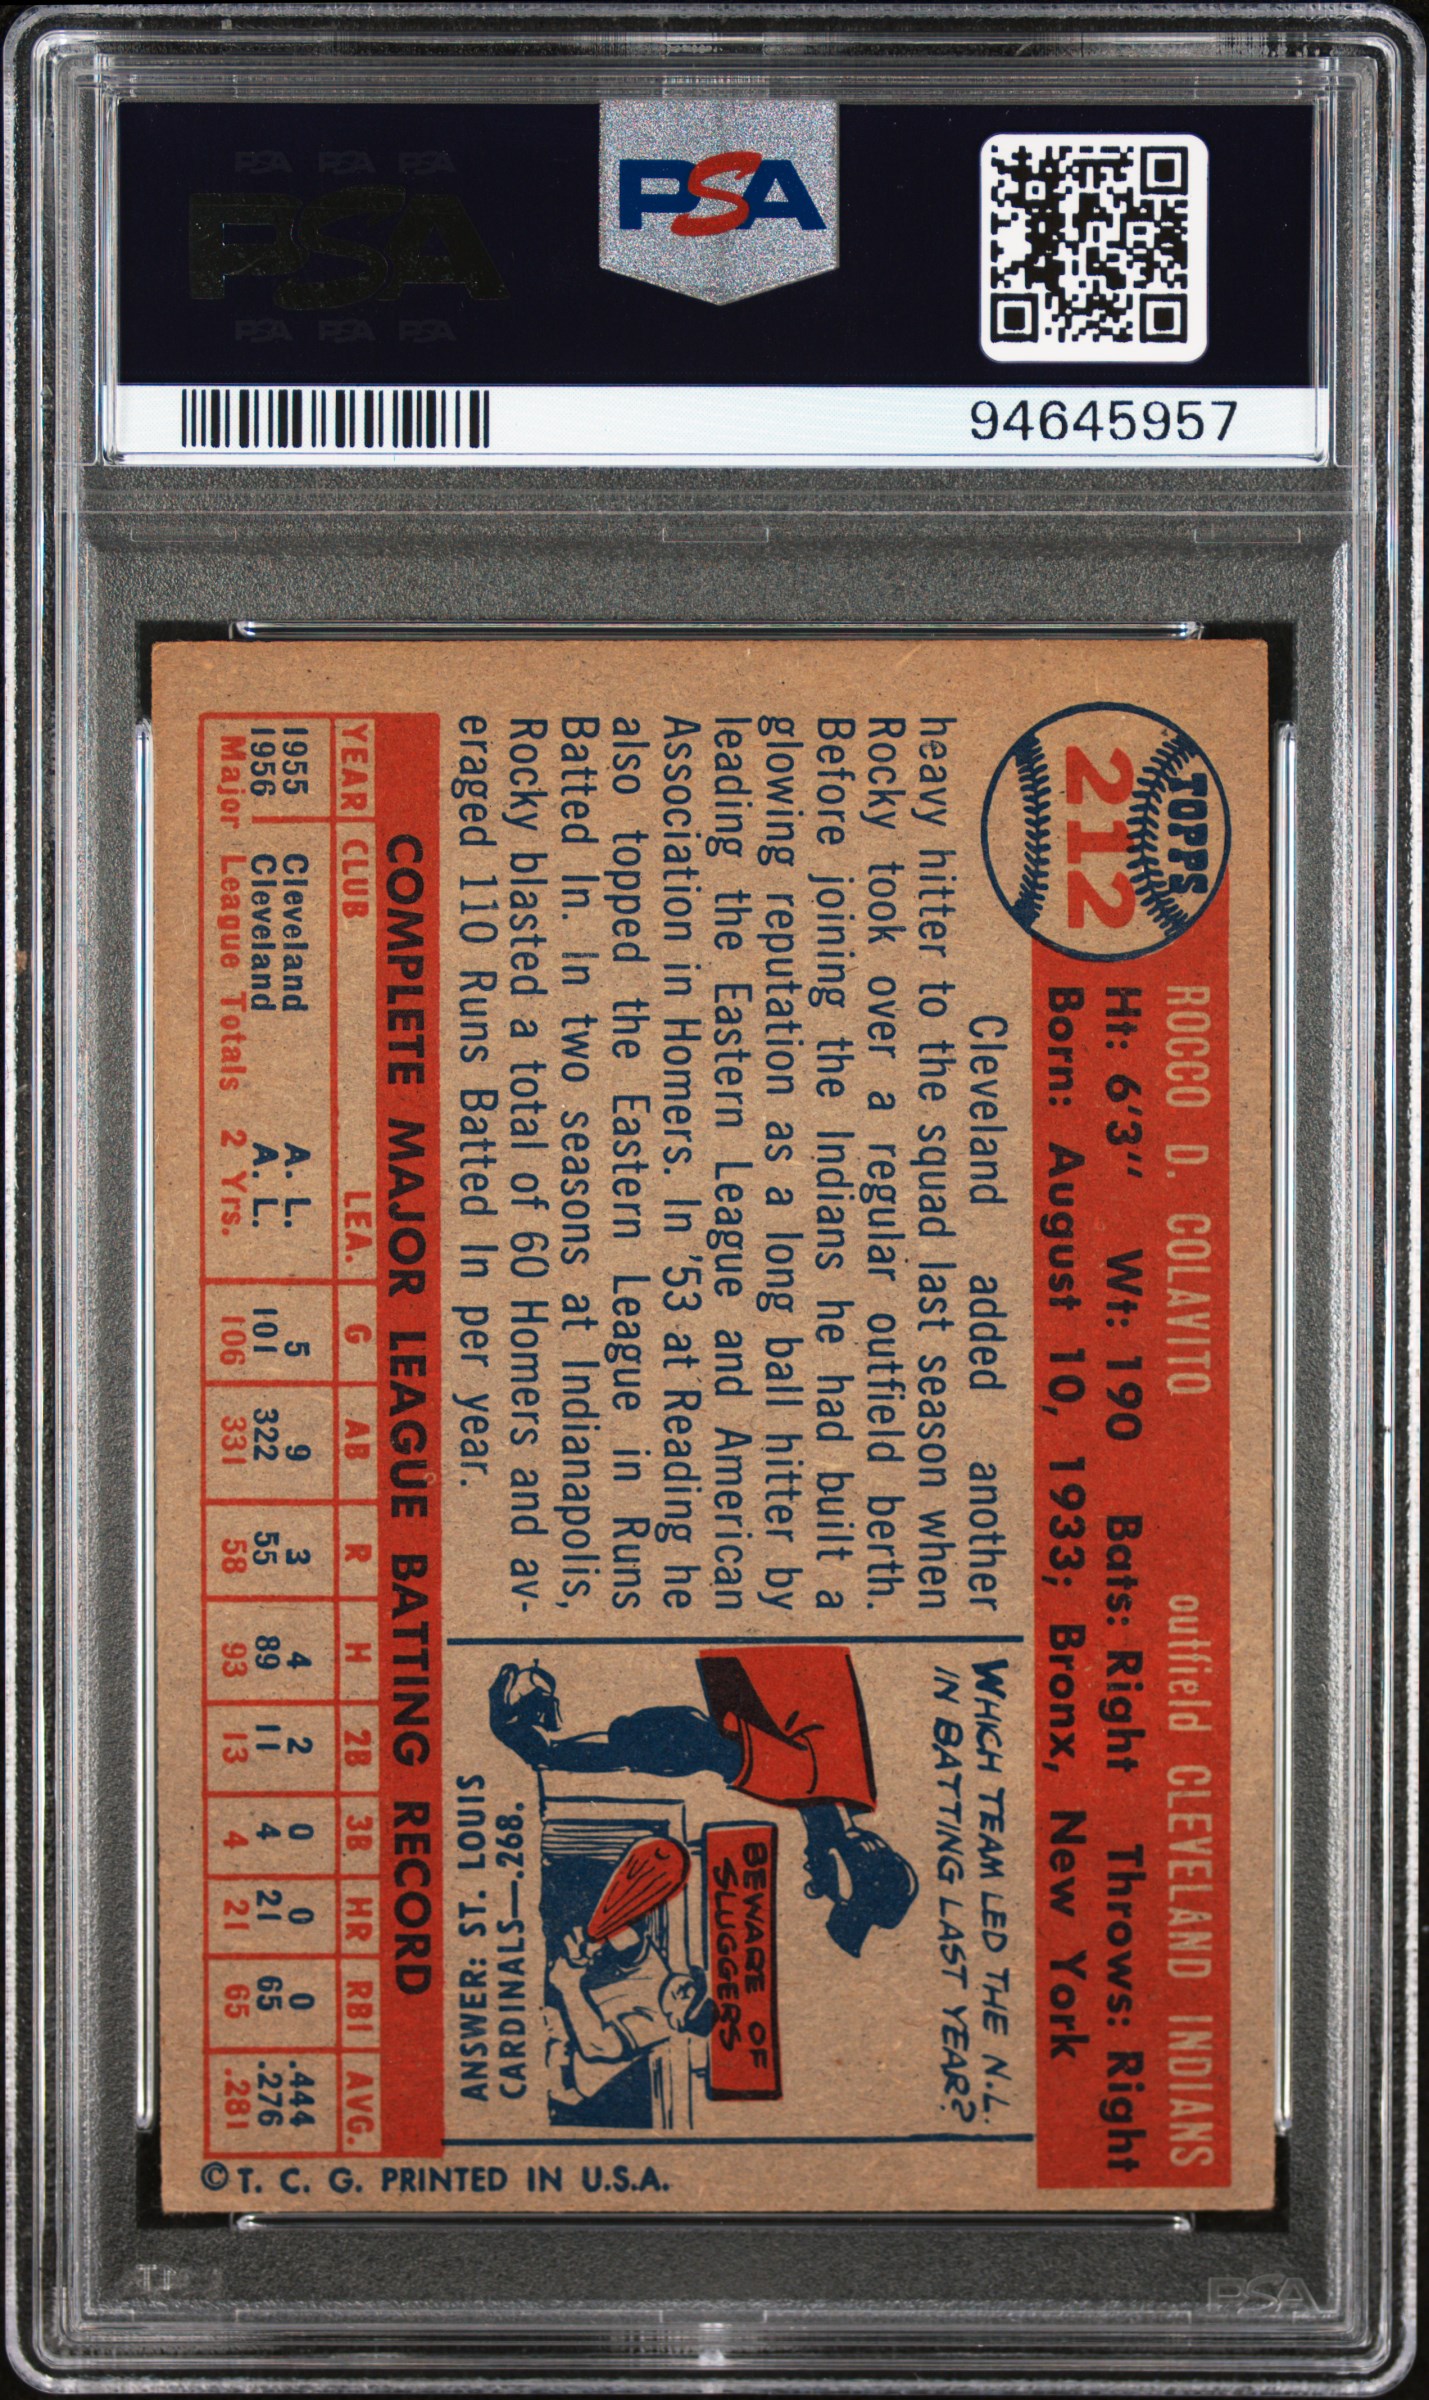 PSA PSA PSA
PSA
PSA PSA PSA
PSA
94645957
TOPPS
212
ROCCO D. COLAVITO outfield CLEVELAND INDIANS
Ht: 6'3" Wt: 190 Bats: Right Throws: Right
Born: August 10, 1933; Bronx, New York
Cleveland added another
heavy hitter to the squad last season when
Rocky took over a regular outfield berth.
Before joining the Indians he had built a
glowing reputation as a long ball hitter by
leading the Eastern League and American
Association in Homers. In '53 at Reading he
also topped the Eastern League in Runs
Batted In. In two seasons at Indianapolis,
Rocky blasted a total of 60 Homers and av-
eraged 110 Runs Batted In per year.
WHICH TEAM LED THE N.L.
IN BATTING LAST YEAR?
BEWARE OF
SLUGGERS
ANSWER: ST. LOUIS
CARDINALS—.268.
COMPLETE MAJOR LEAGUE BATTING RECORD
YEAR CLUB LEA. G AB R H 2B 3B HR RBI AVG.
1955 Cleveland A. L. 5 9 3 4 2 0 0 0 .444
1956 Cleveland A. L. 101 322 55 89 11 4 21 65 .276
Major League Totals 2 Yrs. 106 331 58 93 13 4 21 65 .281
©T. C. G. PRINTED IN U.S.A.
PSA